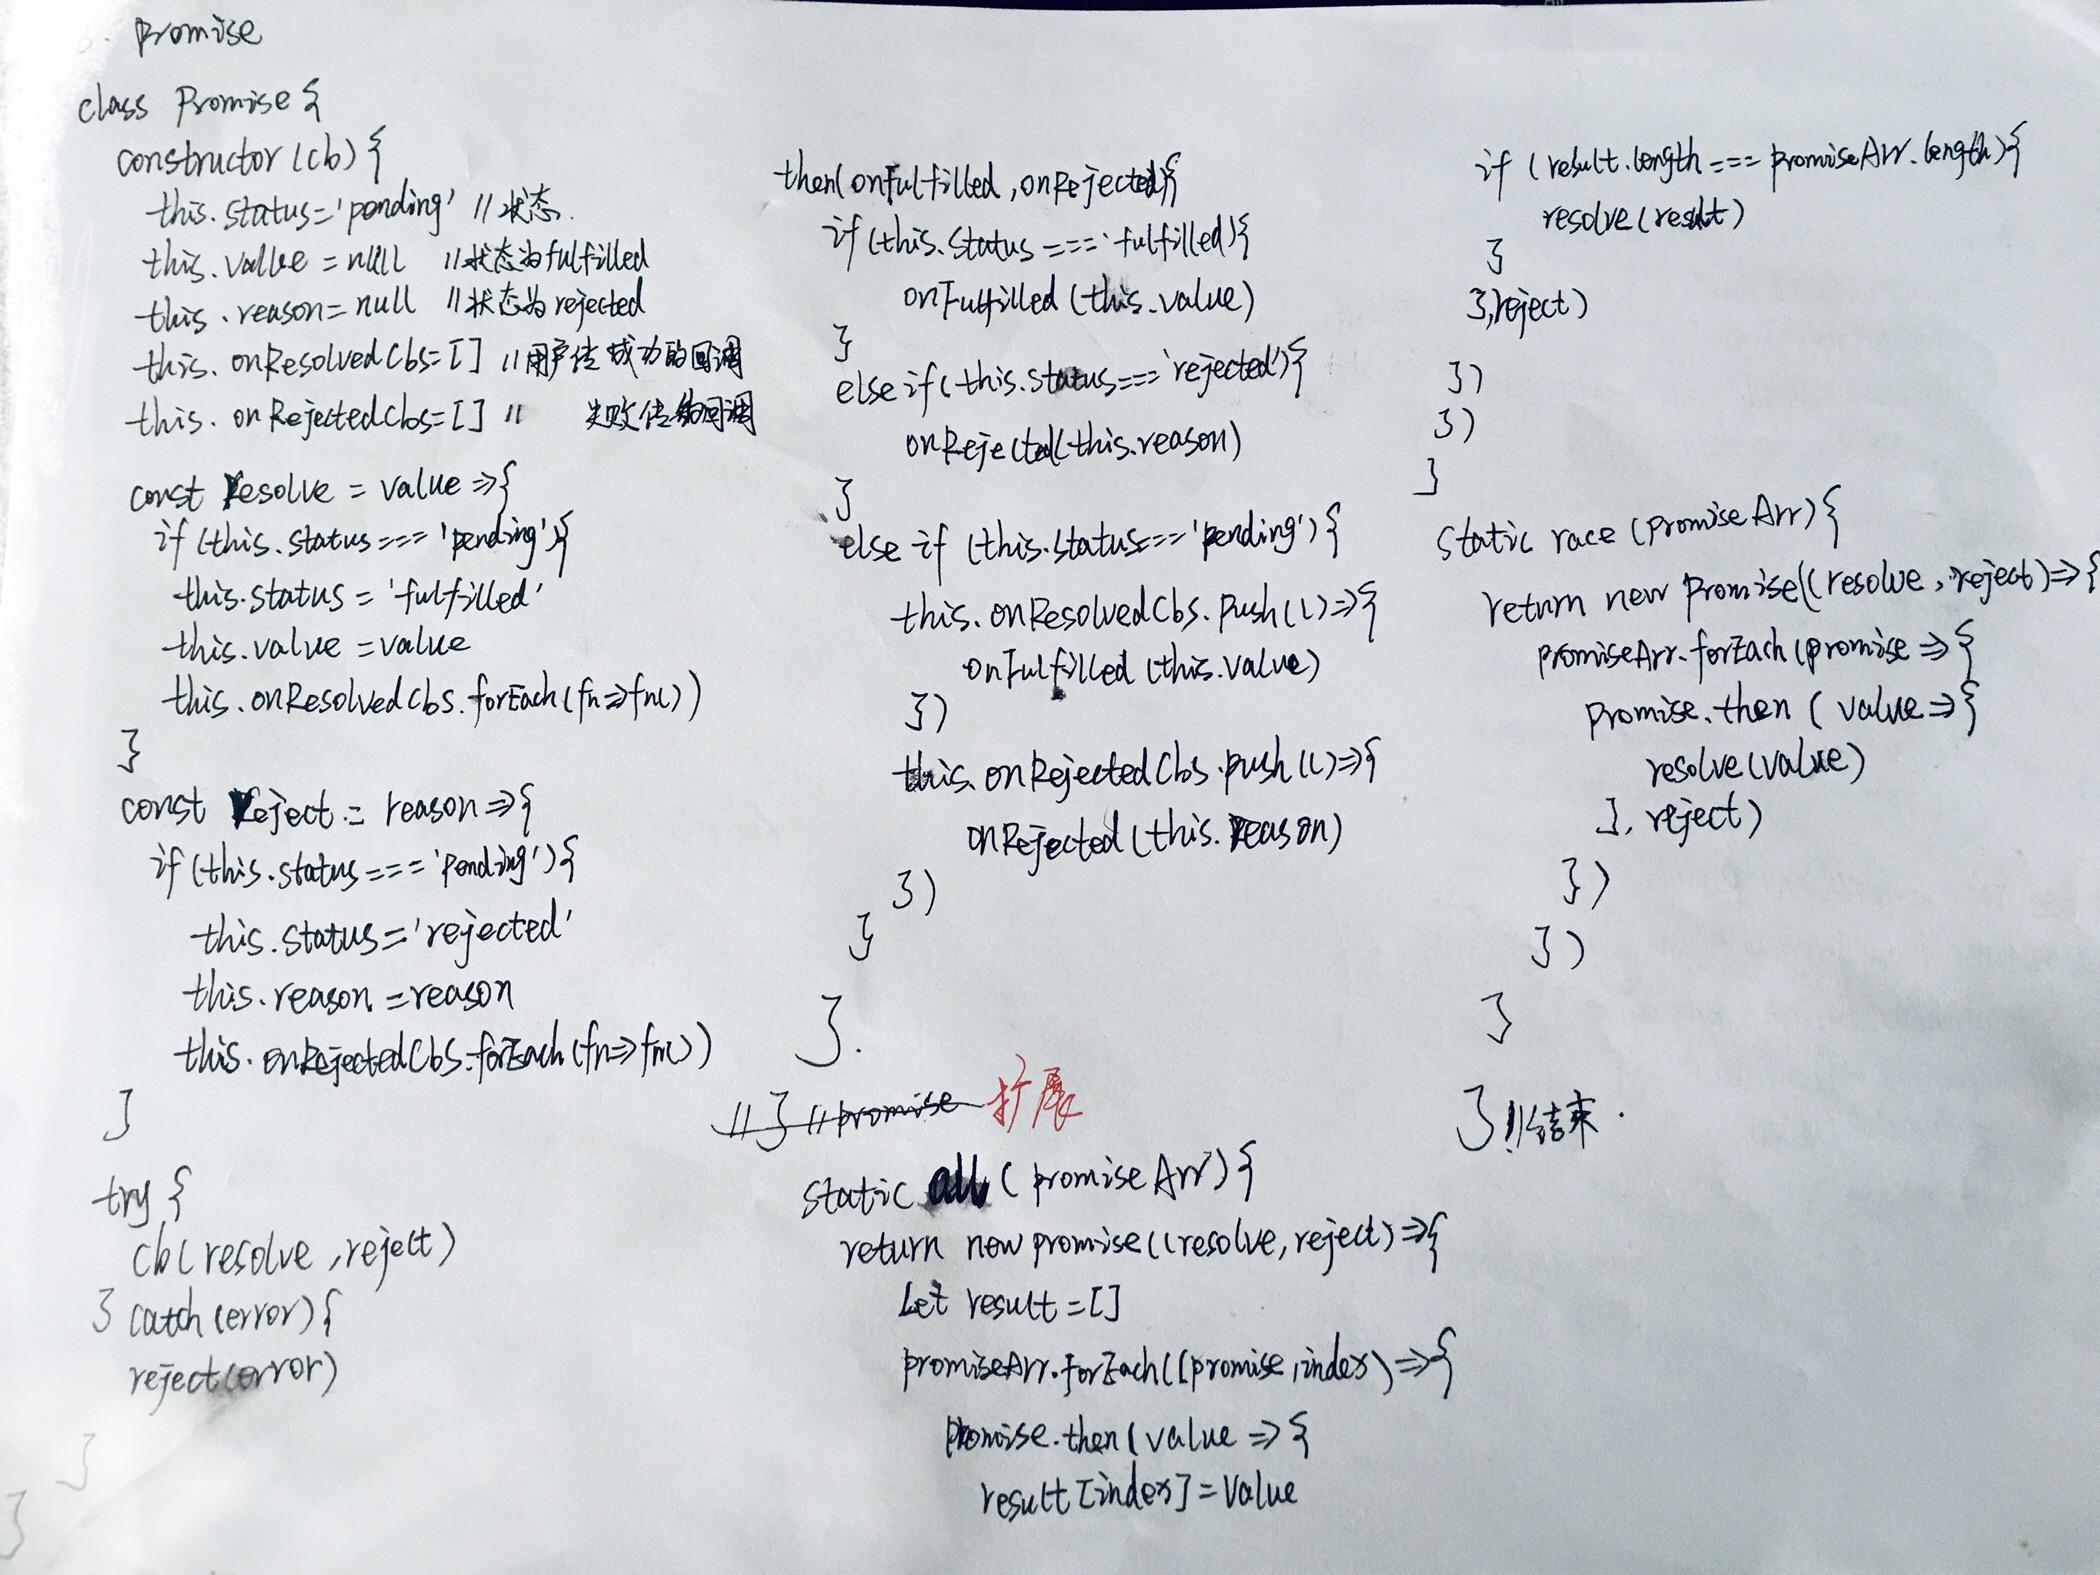 Promise
class Promise {
constructor (cb) {
this.status='pending' // 状态.
this.value = null // 状态为fulfilled
this.reason = null // 状态为rejected
this.onResolvedCbs=[] // 用户传成功的回调
this.onRejectedCbs=[] // 失败传的回调
const resolve = value => {
if (this.status === 'pending'){
this.status = 'fulfilled'
this.value = value
this.onResolvedCbs.forEach(fn=>fn())
}
const reject = reason => {
if (this.status === 'pending') {
this.status = 'rejected'
this.reason = reason
this.onRejectedCbs.forEach(fn=>fn())
}
try {
cb( resolve , reject )
} catch (error) {
reject(error)
}
}
then( onFulfilled , onRejected){
if(this.status === 'fulfilled){
onFulfilled (this.value)
}
else if( this.status === 'rejected'){
onRejected(this.reason)
}
else if (this.status === 'pending') {
this.onResolvedCbs.push(()=>{
onFulfilled (this.value)
})
this.onRejectedCbs.push(()=>{
onRejected (this.reason)
})
}
}.
// } // promise 扩展
static all ( promiseArr) {
return new promise((resolve, reject) => {
Let result = []
promiseArr.forEach((promise, index) => {
promise.then ( value => {
result [index] = value
if (result.length === promiseArr.length) {
resolve (result)
}
},reject)
})
})
}
static race (promiseArr) {
return new promise((resolve, reject) => {
promiseArr.forEach (promise => {
promise.then ( value => {
resolve(value)
}, reject)
})
})
}
} //结束.